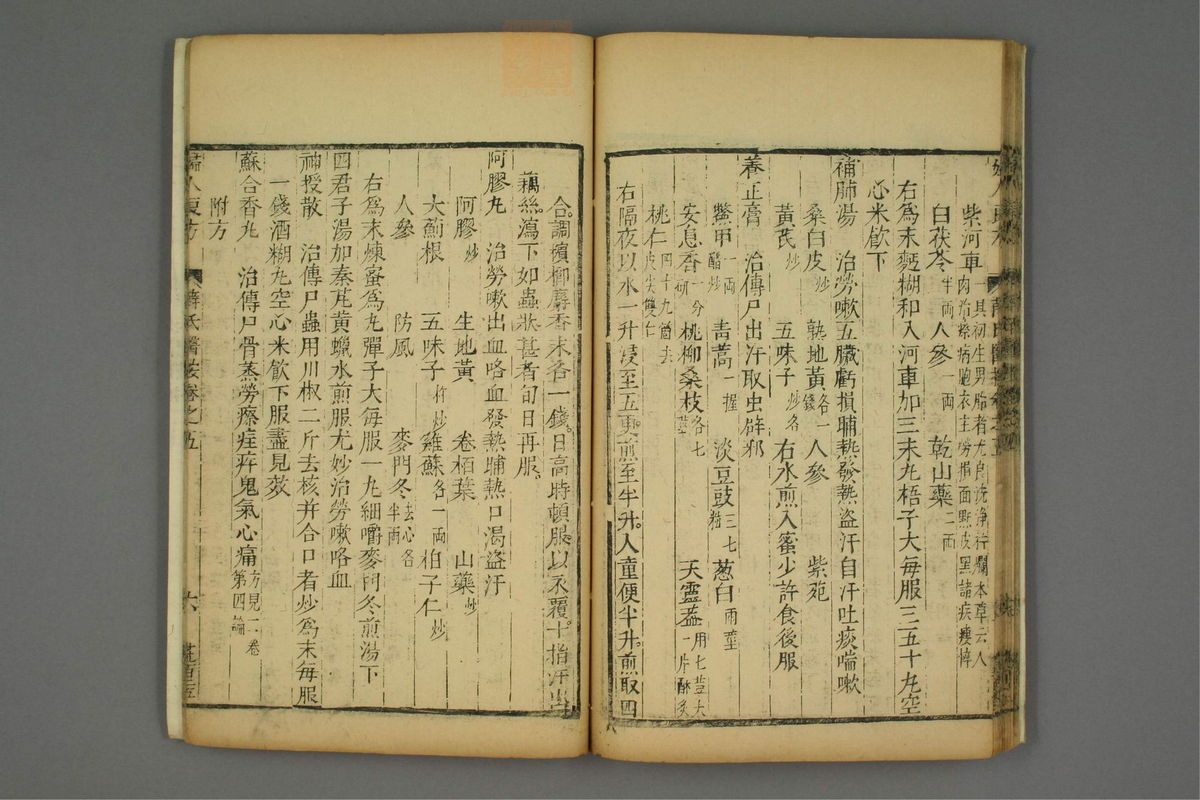 紫河車一具初生男胎者尤良洗淨杵爛本草云人
肉治瘵病胞衣主勞損面䵟皮黑諸疾瘦悴
白茯苓半兩人參一兩乾山藥二兩
右爲末麪糊和入河車加三末丸梧子大每服三五十丸空
心米飲下
補肺湯 治勞嗽五臟虧損晡熱發熱盜汗自汗吐痰喘嗽
桑白皮炒 熟地黃各一錢 人參 紫菀
黃芪炒 五味子炒各 右水煎入蜜少許食後服
養正膏 治傳尸出汗取虫辟邪
鱉甲一兩醋炒 青蒿一握 淡豆豉三七粒 葱白兩莖
安息香一分研 桃柳桑枝各七莖 天靈葢用七荳大一片酥炙
桃仁四十九箇去皮尖雙仁
右隔夜以水一升浸至五更煎至半升入童便半升煎取四
合調檳榔麝香末各一錢日高時頓服以衣覆十指汗出
藕絲瀉下如蟲狀甚者旬日再服
阿膠丸 治勞嗽出血咯血發熱晡熱口渴盜汗
阿膠炒 生地黃 卷栢葉 山藥炒
大薊根 五味子杵炒 雞蘇各一兩 柏子仁炒
人參 防風 麥門冬去心各半兩
右爲末煉蜜爲丸彈子大每服一丸細嚼麥門冬煎湯下
四君子湯加秦艽黃蠟水煎服尤妙治勞嗽咯血
神授散 治傳尸蟲用川椒二斤去核并合口者炒爲末每服
一錢酒糊丸空心米飲下服盡見效
蘇合香丸 治傳尸骨蒸勞瘵疰痒鬼氣心痛方見二卷第四論
附方
婦人良方 薛氏醫按卷之五 六